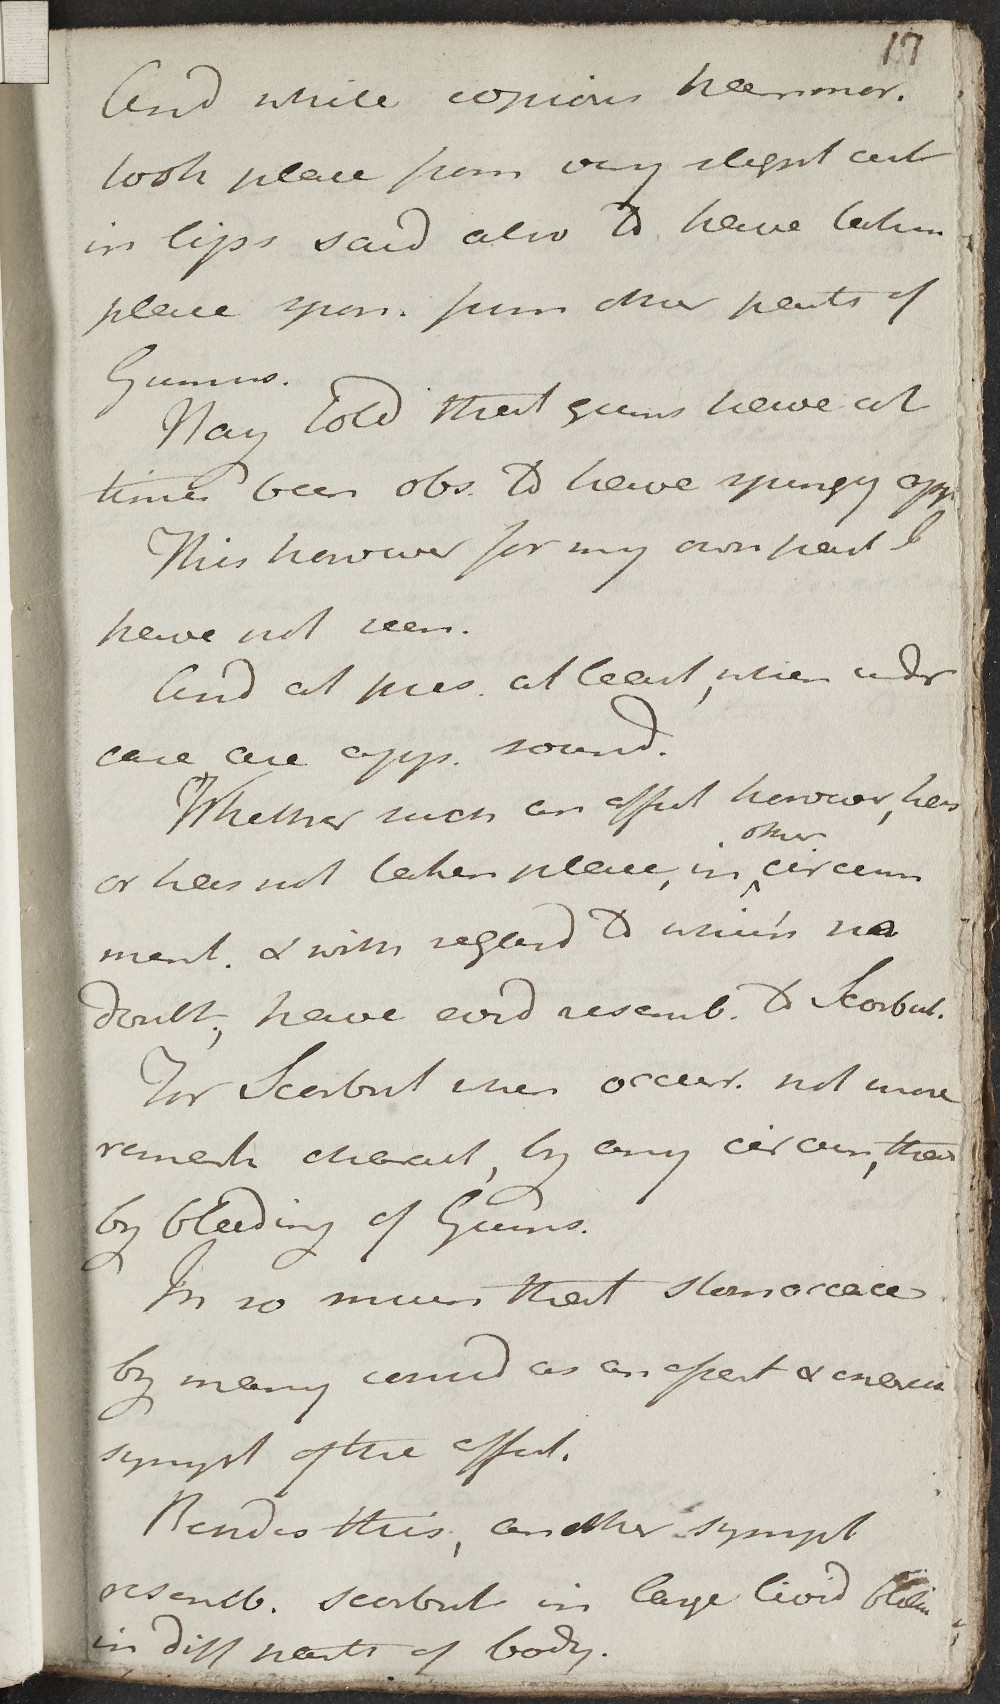 17
And while copious haemor.
took place from very slight cut
in lips said also to have taken
place spon. from other parts of
Gums.
Nay told that gums have at
times been obs. to have spungy app
This however for my own part I
have not seen.
And at pres. at least, when undr
care are app. sound.
Whether such an affect however, has
or has not taken place, in other circum
ment. & with regard to which no
doubt, have evid resemb. to Scorbut.
For Scorbut when occur. not more
remark charact, by any circum, than
by bleeding of Gums.
In so much that stomacace
by many consid as an apert & charac
sympt of the affect.
Besides this, another sympt
resemb. scorbut in large livid
in diff parts of body.